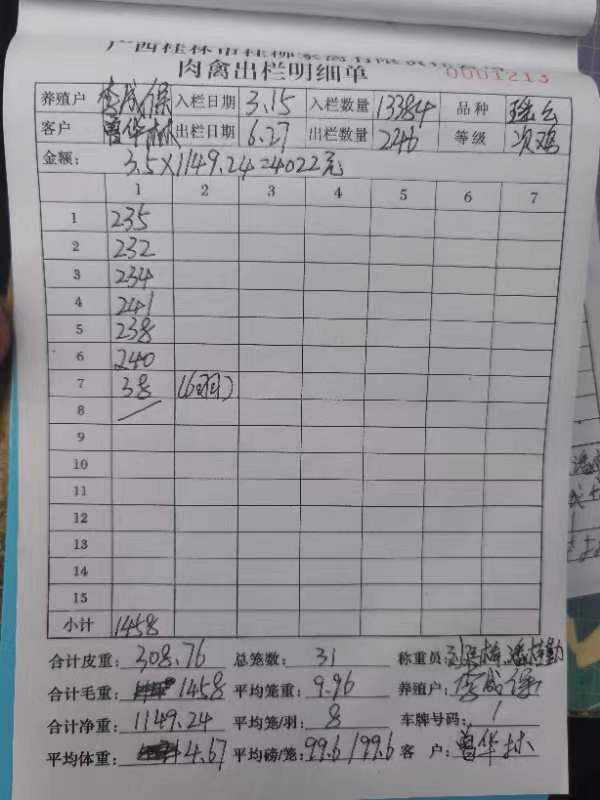 肉禽出栏明细单 0001213
养殖户 李成保 入栏日期 3.15 入栏数量 13384 品种 瑶乡
客户 曾华林 出栏日期 6.27 出栏数量 246 等级 项鸡
金额: 3.5×1149.24=4022元
1 2 3 4 5 6 7
1 235
2 232
3 234
4 241
5 238
6 240
7 38 (6羽)
8 /
9
10
11
12
13
14
15
小计 1458
合计皮重: 308.76 总笼数: 31 称重员:
合计毛重: 1458 平均笼重: 9.96 养殖户: 李成保
合计净重: 1149.24 平均笼/羽: 8 车牌号码: 1
平均体重: 4.67 平均磅/笼: 99.6/99.6 客户: 曾华林